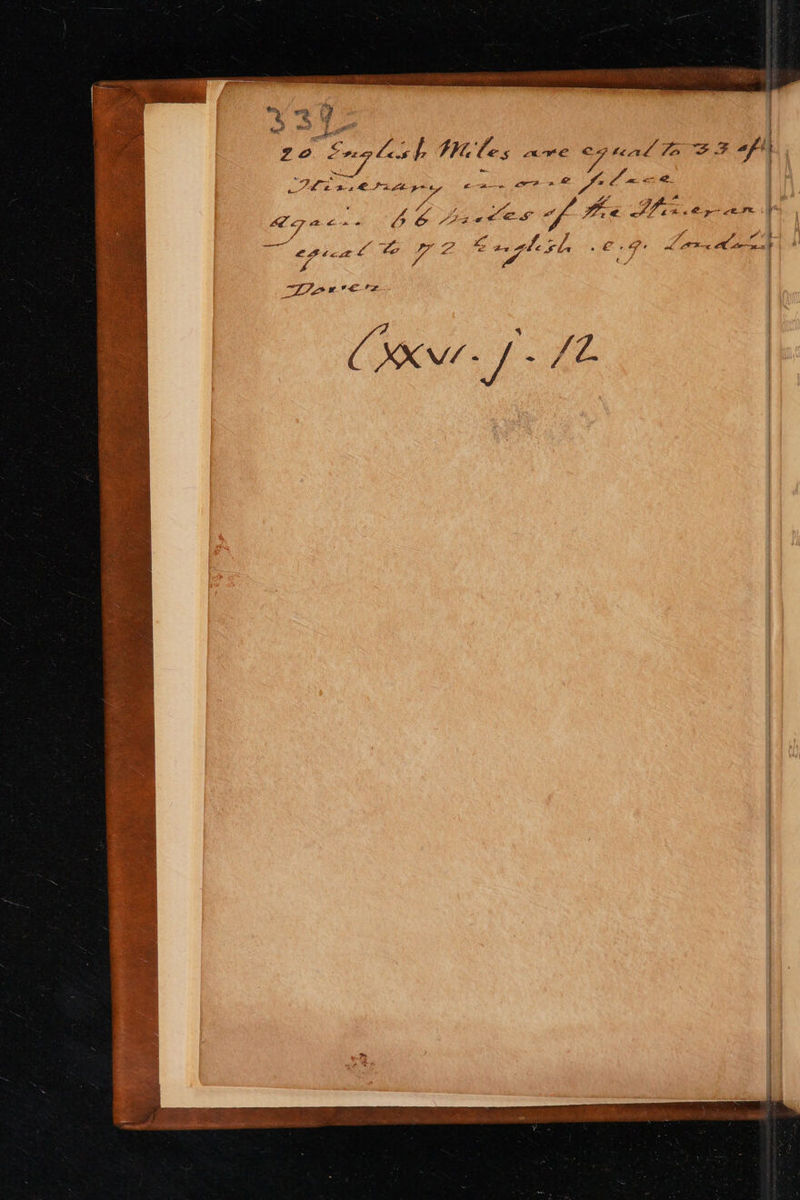 339
20 English Miles are equal to 33 of
Itinerary in one place
Again 66 miles of the Itinerary
equal to 72 English . e.g. London
Dover
Cxxvi - j - 12